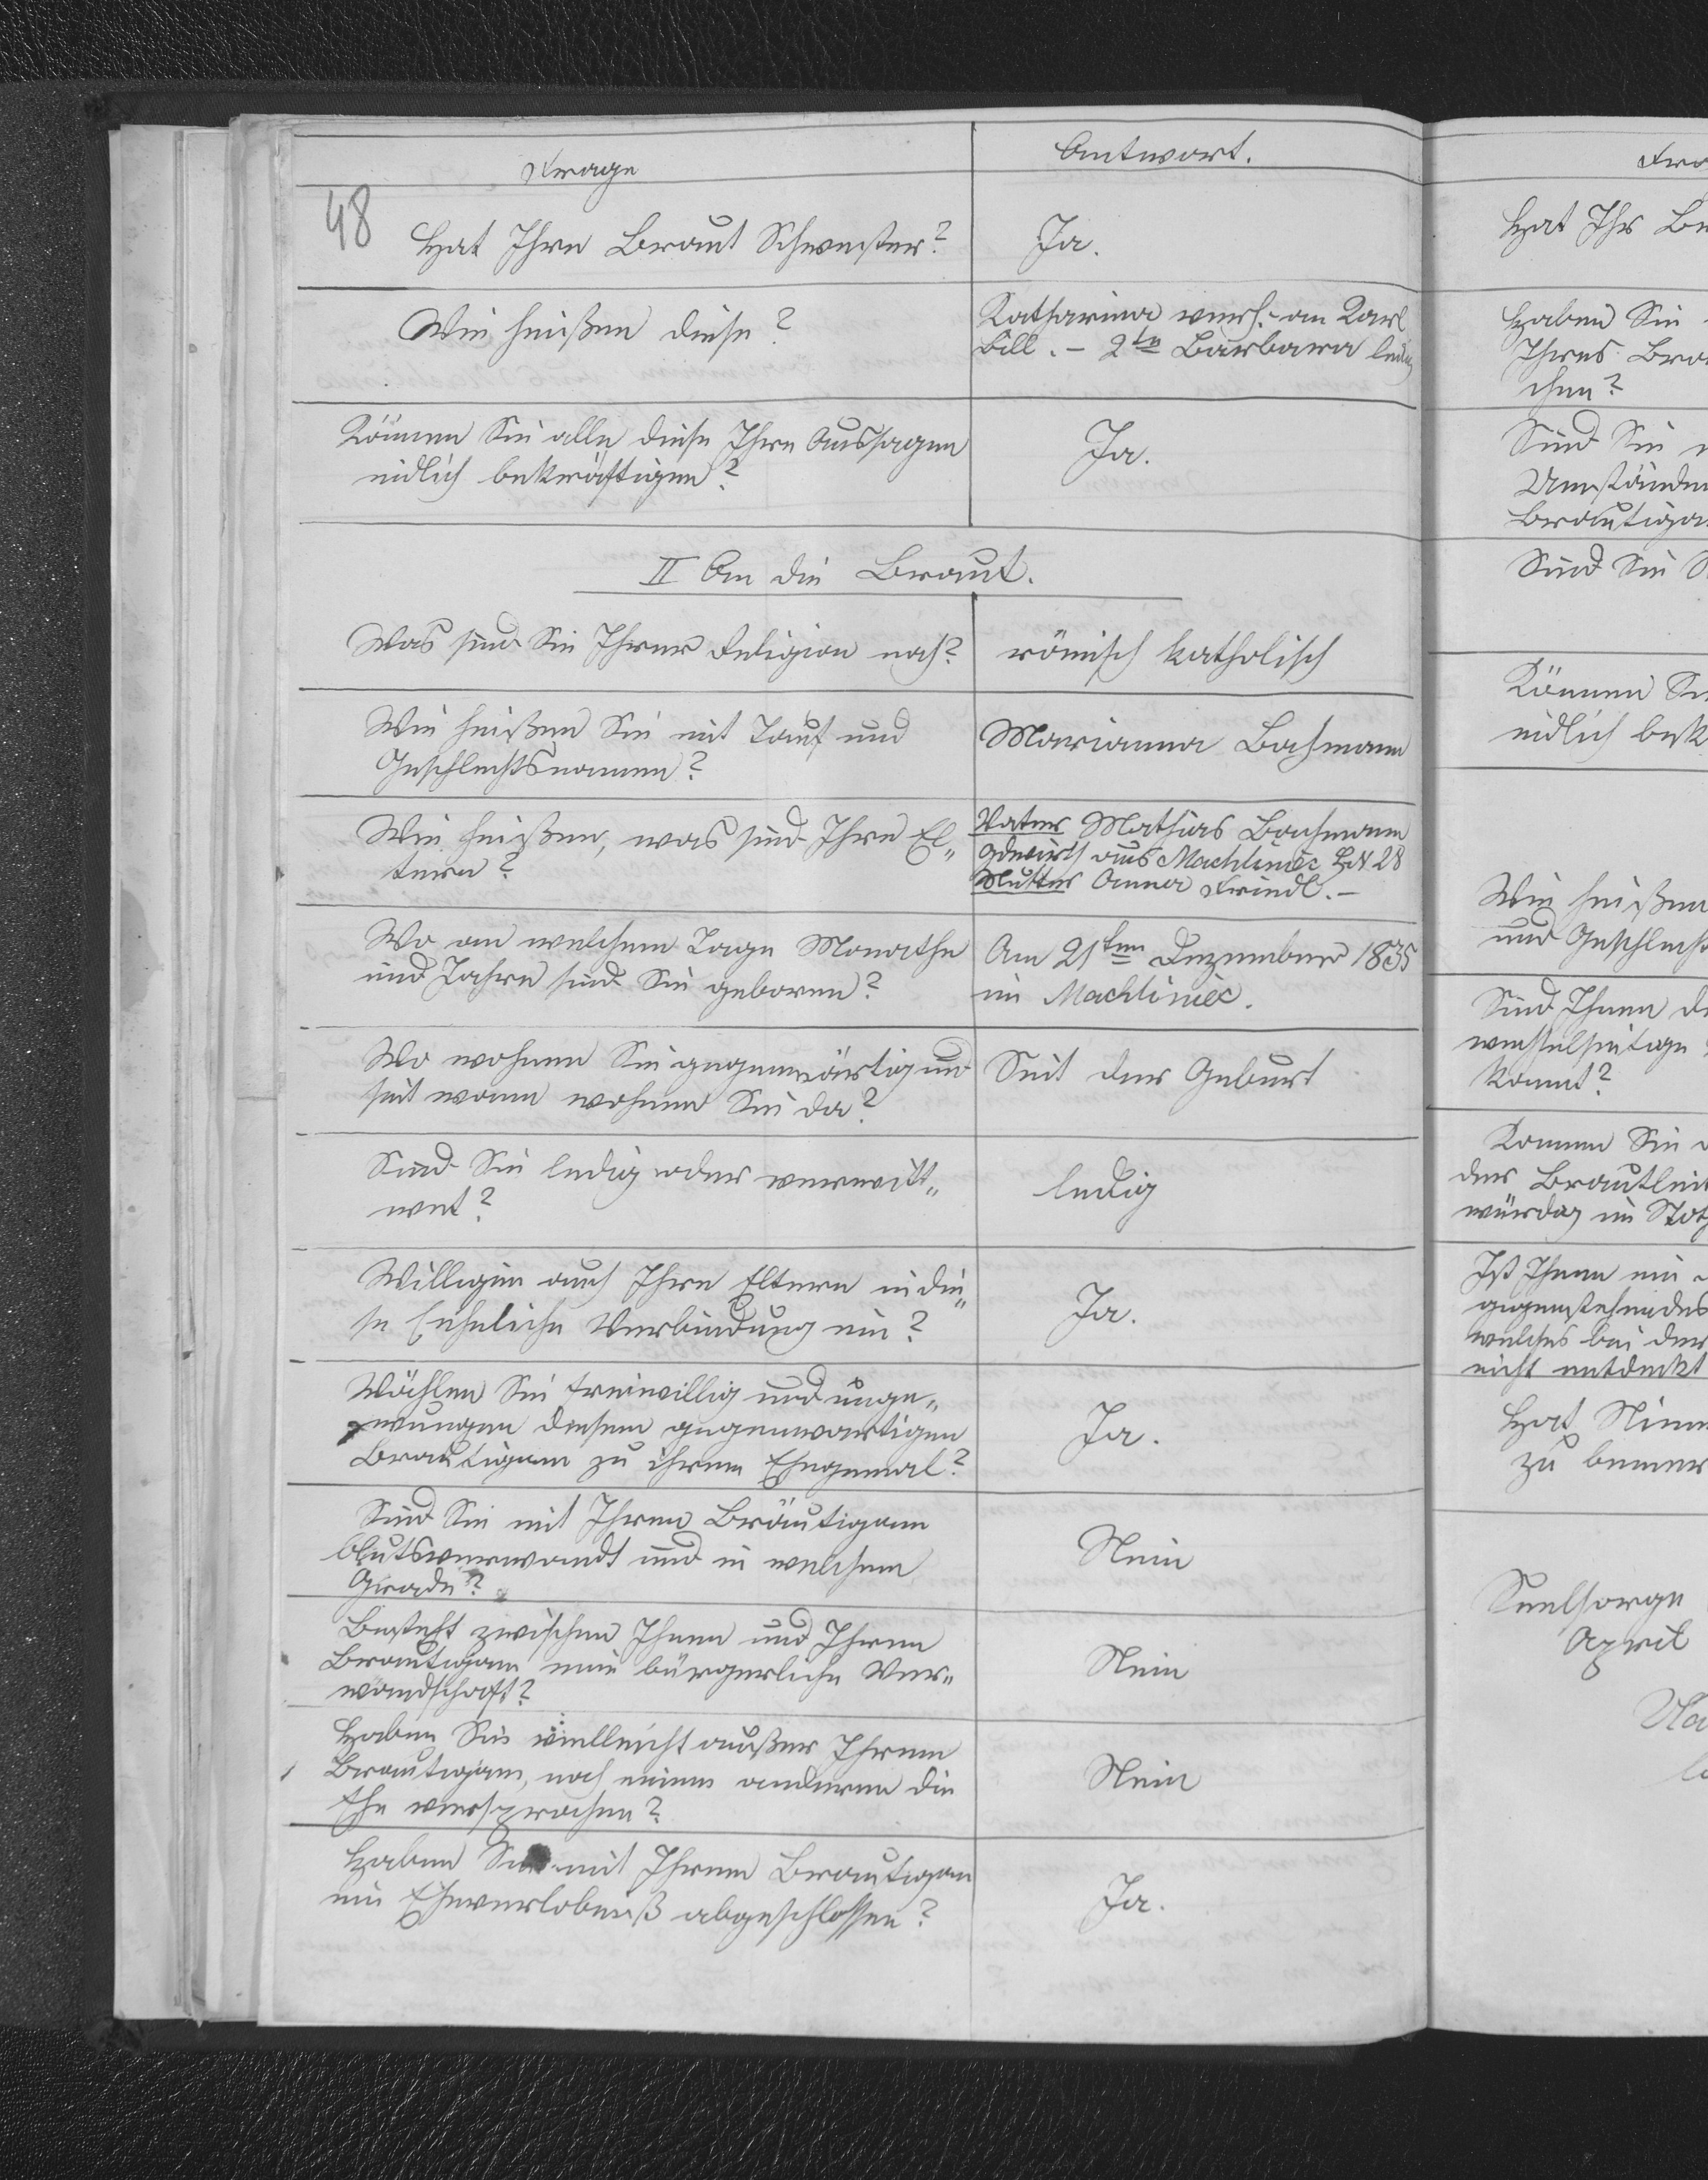 Frage
Antwort.
48
Hat Ihre Braut Schwester?
Ja.
Wie heißen diese?
Katharina verh. an Karl
Bill. – 2te Barbara ledig
Können Sie alle diese Ihre Aussagen
eidlich bekräftigen?
Ja.
II An die Braut.
Was sind Sie Ihrer Religion nach?
römisch katholisch
Wie heißen Sie mit Tauf und
Geschlechtsnamen?
Marianna Bachmann
Wie heißen, was sind Ihre El„
tern?
Vater Mathias Bachmann
Gdwirth aus Machliniec HN 28
Mutter Anna Friedl. –
Wo an welchem Tage Monathe
und Jahre sind Sie geboren?
Am 21ten Dezember 1835
in Machliniec.
Wo wohnen Sie gegenwärtig und
seit wann wohnen Sie da?
Seit der Geburt
Sind Sie ledig oder verwitt„
wet?
ledig
Willigen auch Ihre Eltern in die„
se Eheliche Verbindung ein?
Ja.
Wählen Sie freiwillig und unge„
zwungen diesen gegenwartigen
Brautigam zu ihrem Ehegemal?
Ja.
Sind Sie mit Ihrem Bräutigam
blutsverwandt und in welchem
Grade?
Nein
Besteht zwischen Ihnen und Ihrem
Brautigam eine bürgerliche Ver„
wandschaft?
Nein
Haben Sie vielleicht außer Ihrem
Brautigam, noch einem anderen die
Ehe versprochen?
Nein
Haben Sie mit Ihrem Brautigam
ein Eheverlobniß abgeschlossen?
Ja.
Hat Ihr
Haben Sie
Ihres
chen?
Sind Sie
Umständen
Sind Sie
Können
eidlich
Wie heißen
und
Sind Ihnen
wechselseitige
kannt?
Kennen Sie
der
Ist Ihnen ein
welches bei der
nicht entdeckt
Hat
zu
Seelsorge
April